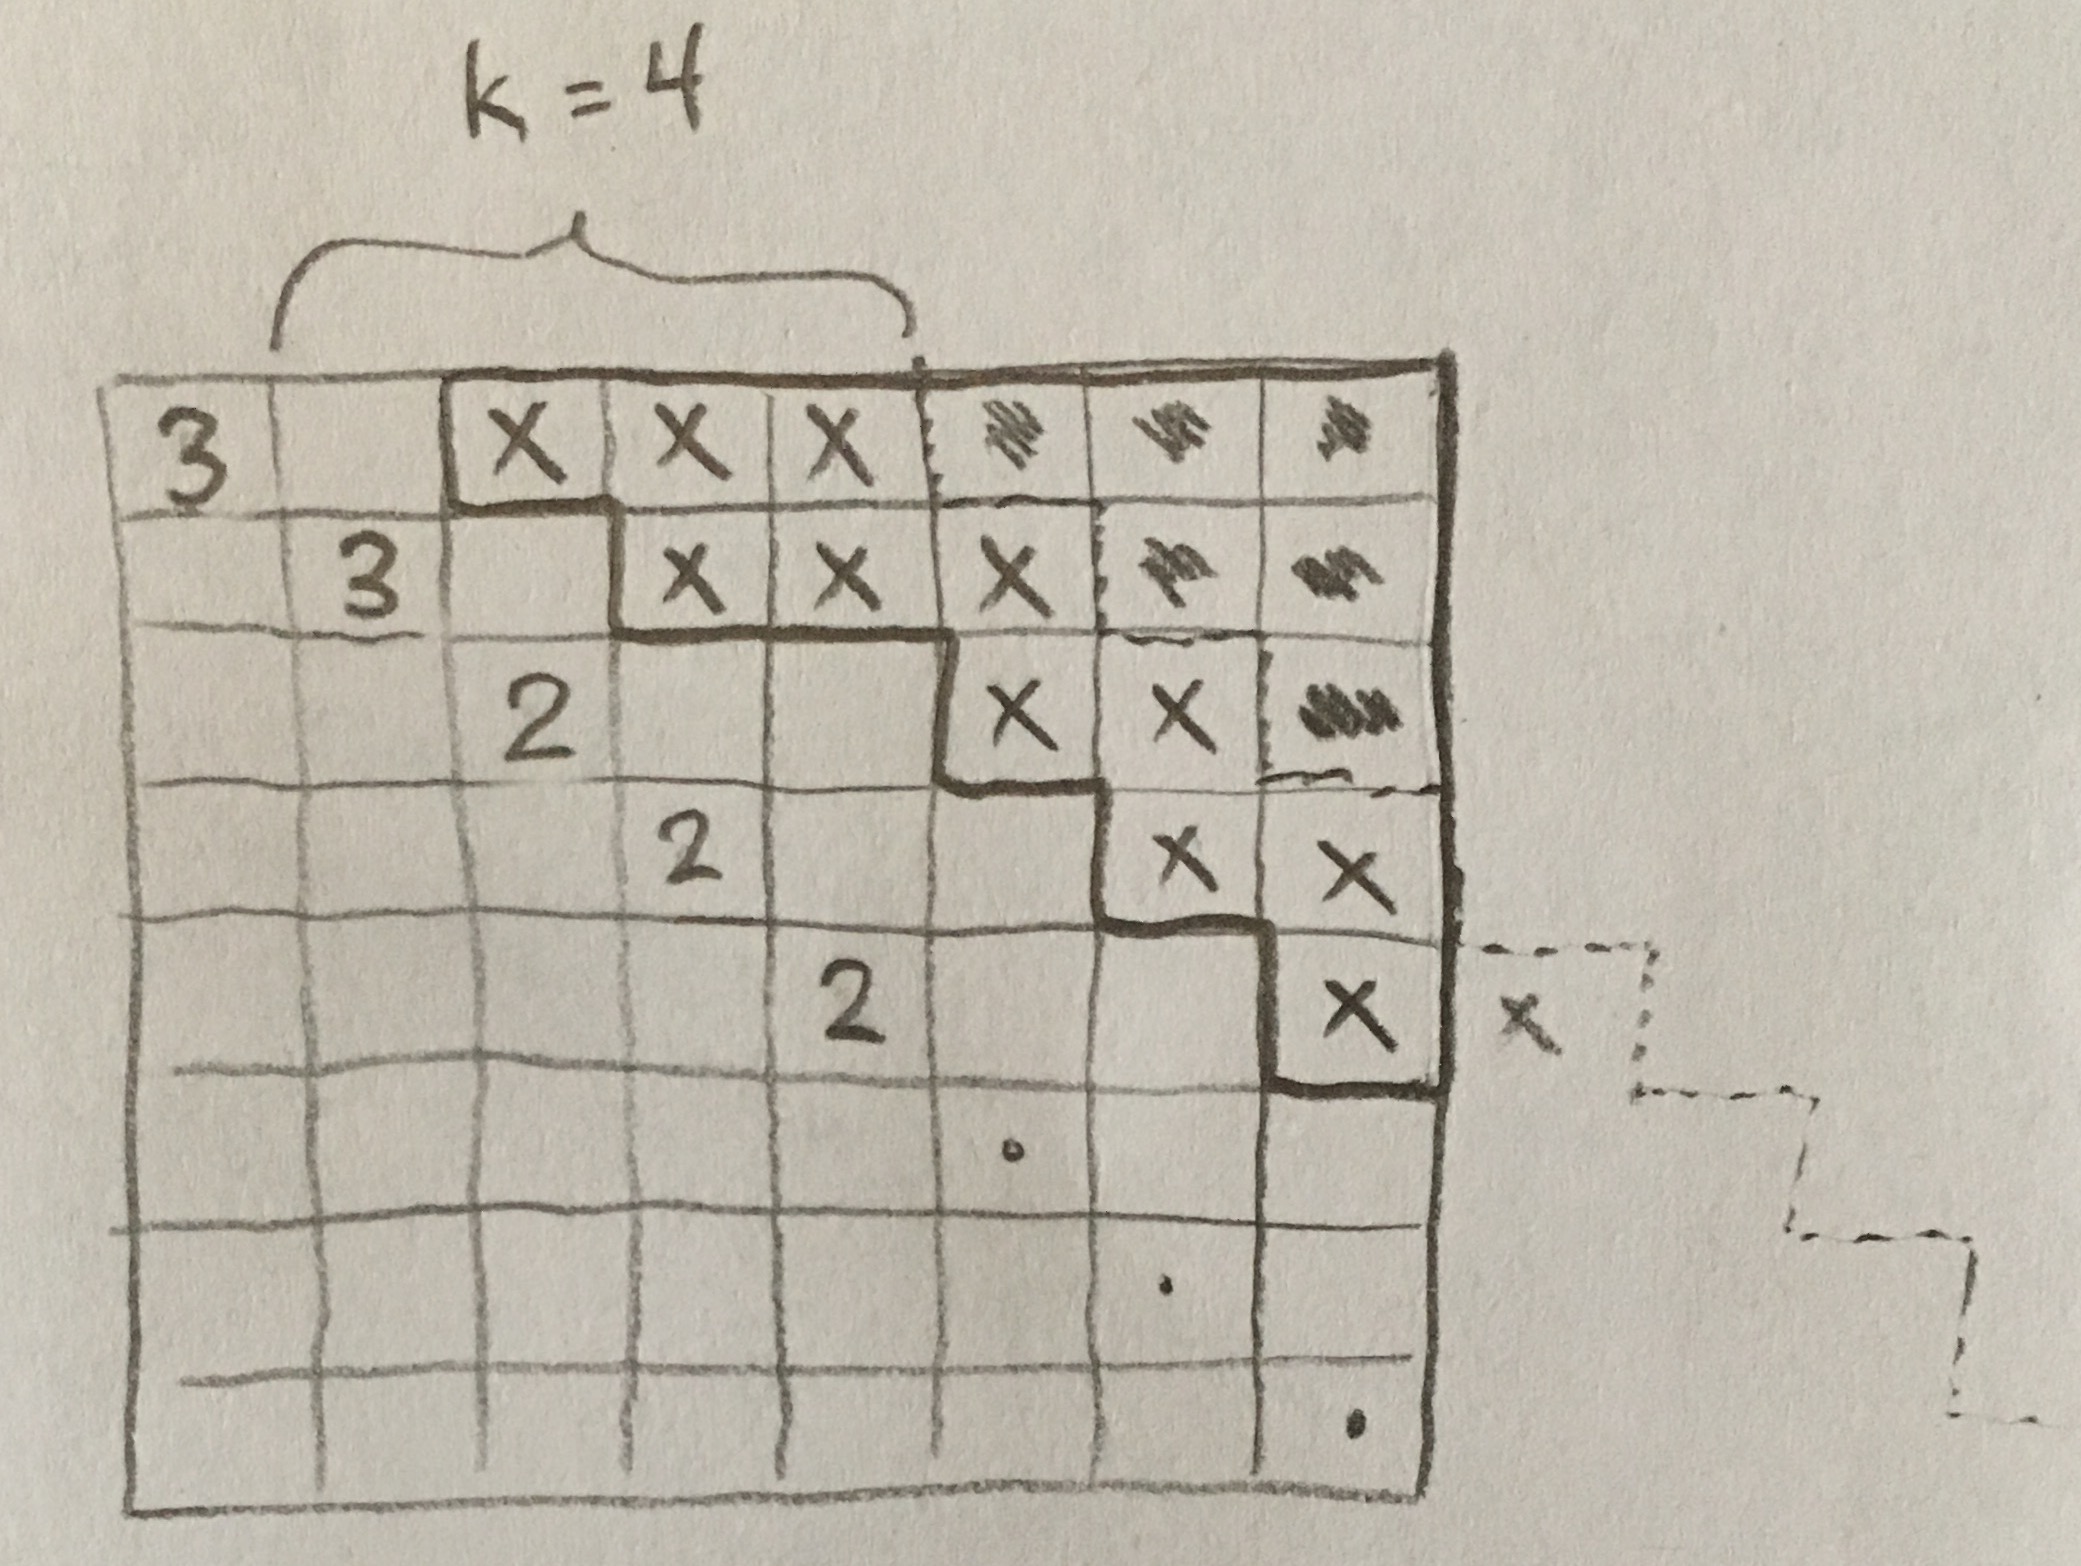 k = 4
3 x x x
3 x x x
2 x x
2 x x
2 x x